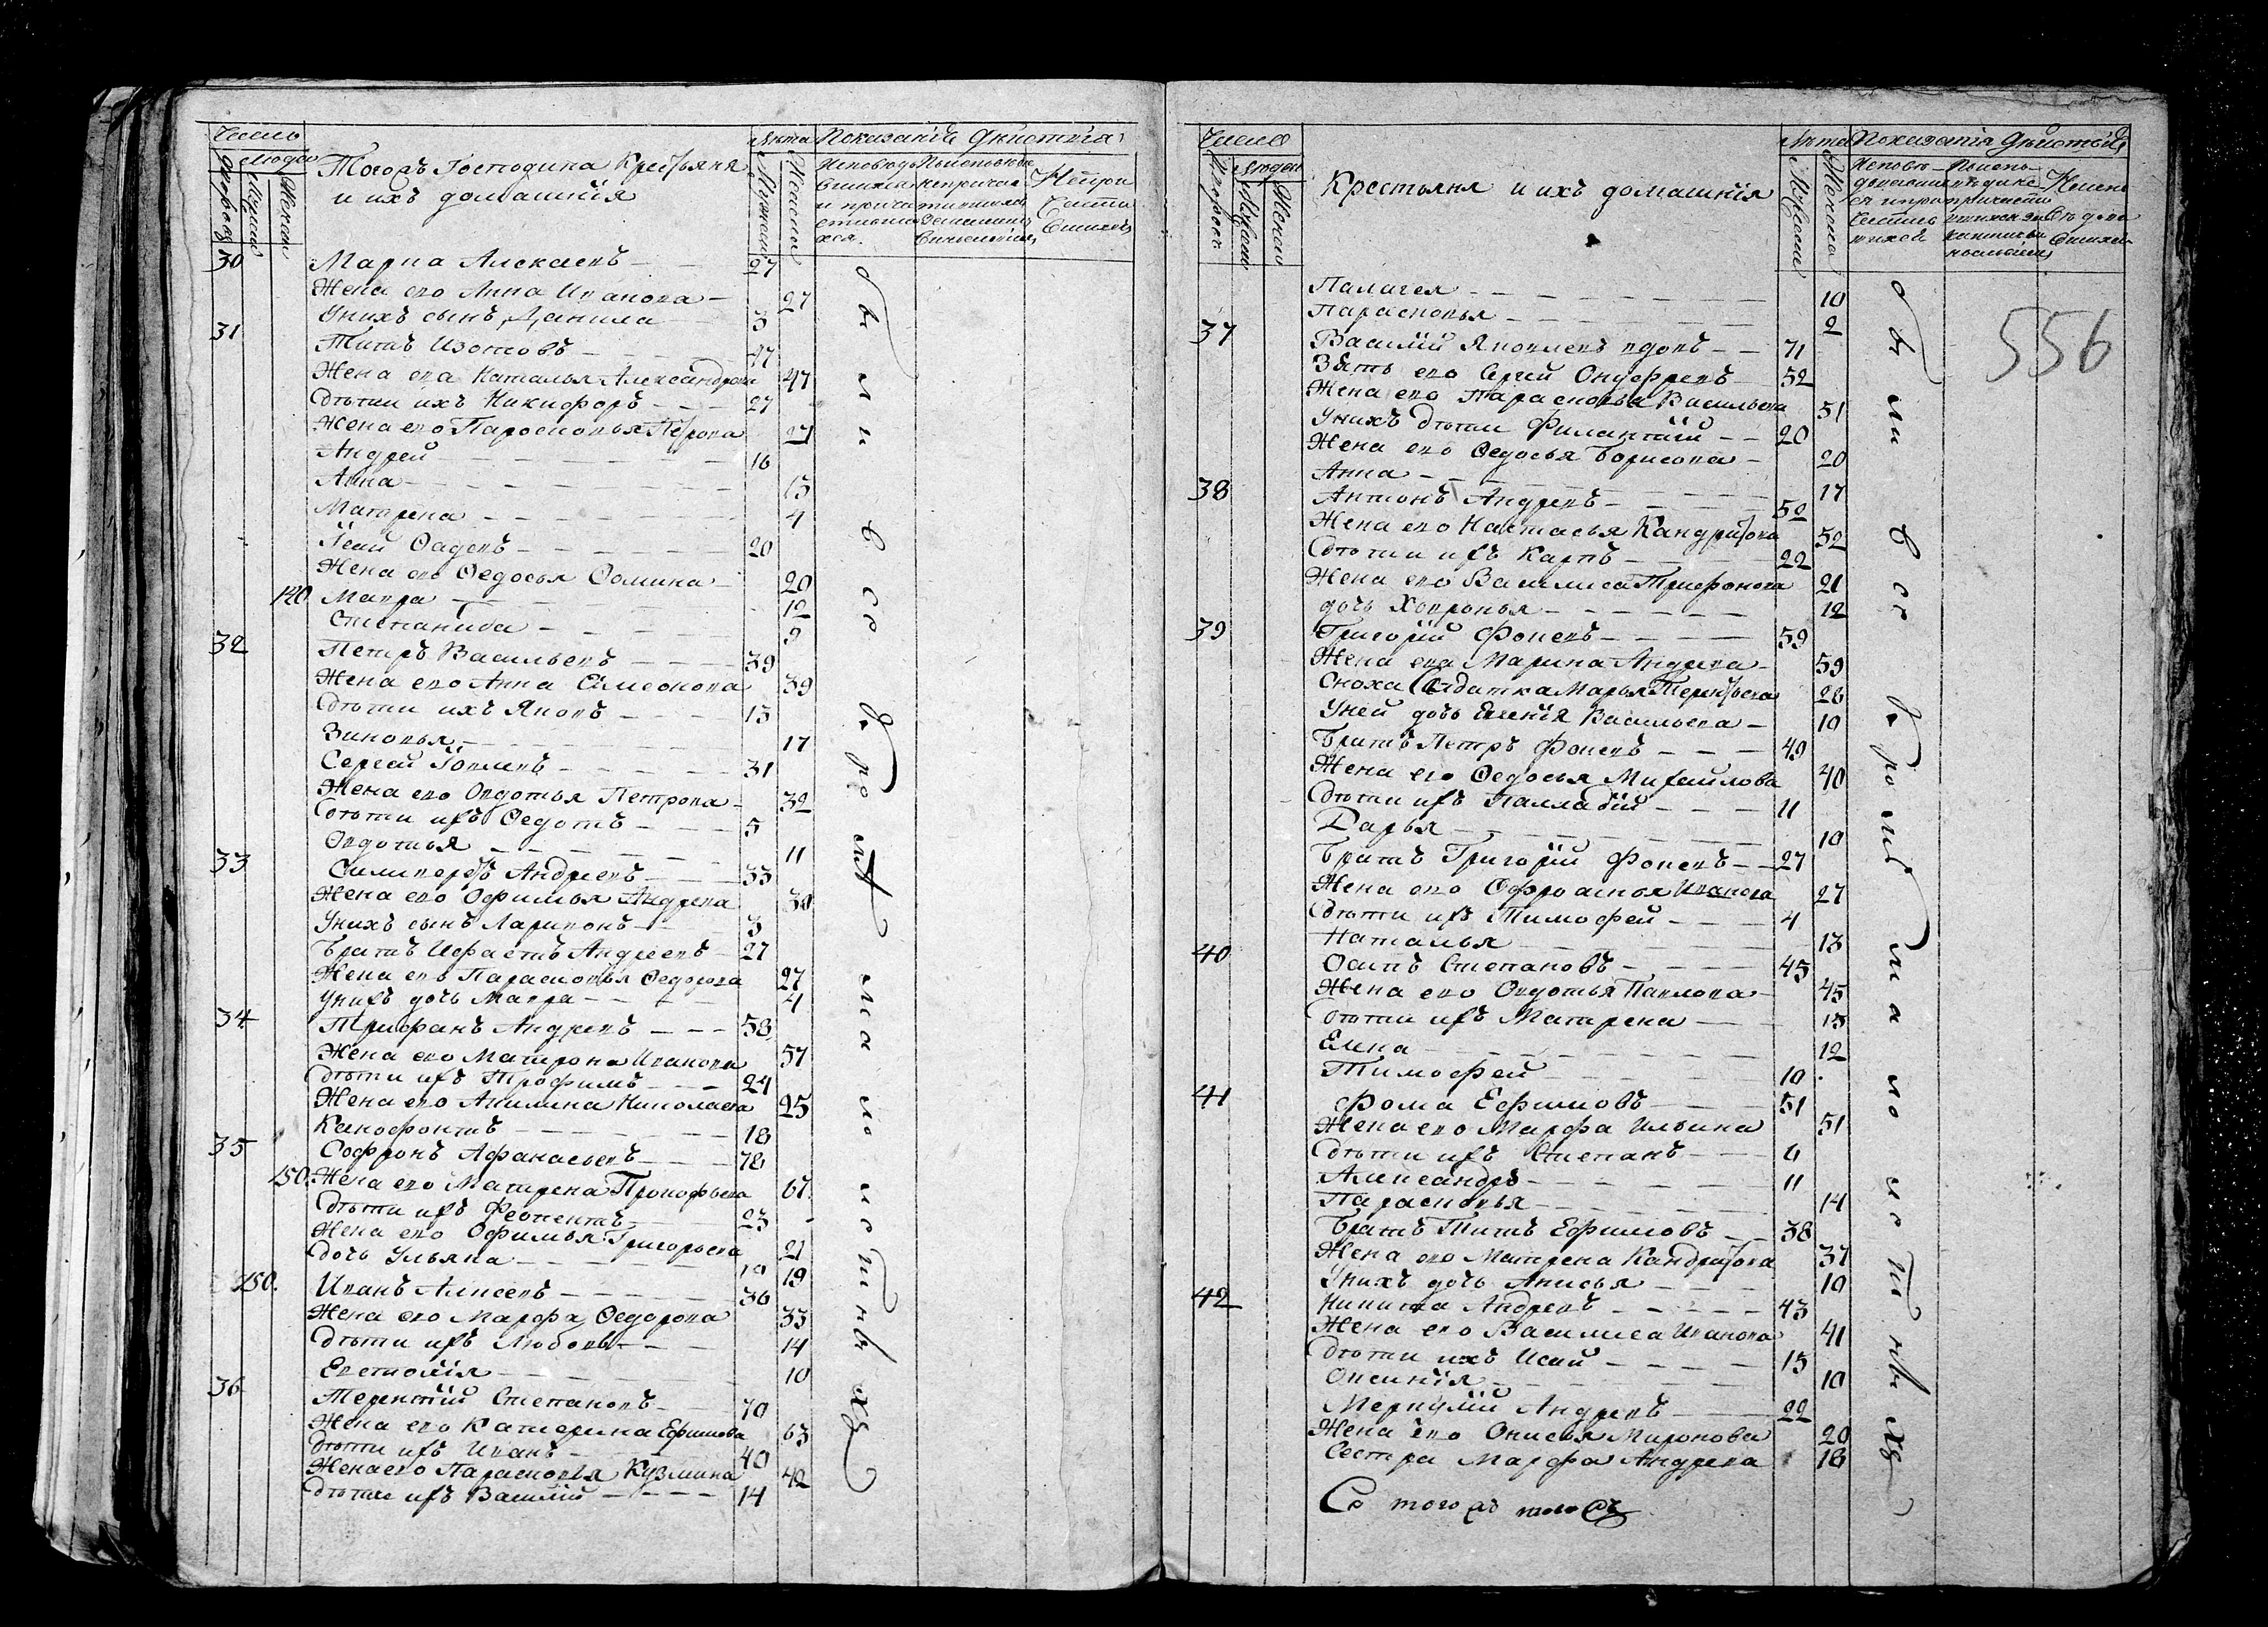 Число
Людей
Дворовъ
Мужескъ
Женскъ
Тогожъ Господина Крестьяня
и ихъ домашнія
Лѣта
Мужескъ
Женска
Показаніе дѣйствія
30 Марка Алексѣевъ 27
Жена ево Анна Иванова 27
Унихъ сынъ Данила 3
31 Титъ Изотовъ 47
Жена ева Наталья Александрова 47
Дѣтти ихъ Никифоръ 27
Жена ево Парасковья Петрова 27
Андрей 16
Анна 15
Матрена 4
Ѳадеевъ 20
Жена ево Ѳедосья Ѳомина 20
120 Мавра 12
Степанида 9
32 Петръ Васильевъ 39
Жена ево Анна Симеонова 39
Дѣтти ихъ Яковъ 15
Зиновья 17
Сергей Іовлевъ 31
Жена ево Овдотья Петрова 32
Дѣтти ихъ Ѳедотъ 5
Овдотья 11
33 Андреевъ 33
Жена ево Офимья Андрева 30
Унихъ сынъ Ларивонъ 3
Братъ Андреевъ 27
Жена ево Парасковья Ѳедорова 27
Унихъ дочь Мавра 4
34 Трифанъ Андревъ 58
Жена ево Матрона Иванова 57
Дѣтти ихъ Трофимъ 24
Жена ево Акилина Николаева 25
Ксенофонтъ 18
35 Софронъ Афанасьевъ 78
150. Жена ево Матрена Прокофьева 67
Дѣтти ихъ 23
Жена ево Офимья Григорьева 21
дочь Ульяна 19
150. Иванъ Алксеевъ 36
Жена ево Марфа Ѳедорова 33
Дѣтти ихъ Любовь 14
10
36 Терентий Степановъ 70
Жена ево Катерина Ефимова 63
Дѣтти ихъ Иванъ 40
Жена ево Парасковья Кузмина 42
Дѣтти ихъ Василий 14
Число
Людей
Дворовъ
Мужескъ
Женскъ
Крестьяня и ихъ домашнія
Лѣта
Мужеска
Женска
Показанія дѣйствій
556
Палагея 10
Парасковья 2
37 Василий Яковлевъ вдовъ 71
Зять ево Сергей Онуфревъ 52
Жена ево Парасковья Васильева 51
Унихъ дѣтти 20
Жена ево Ѳедосья Борисова 20
Анна 17
38 Антонъ Андревъ 52
Жена ево Настасья Кандратова 52
Дѣтти ихъ Карпъ 22
Жена ево Василиса Трифонова 21
дочь Ховронья 12
39 Григорий Фокевъ 59
Жена ева Марина Андрева 59
Сноха Солдатка Марья Терентьева 28
Уней дочь Евгенія Васильева 10
Братъ Петръ Фокевъ 40
Жена ево Ѳедосья Михайлова 40
Дѣтти ихъ Палладий 11
Дарья 10
Братъ Григорий Фокевъ 27
Жена ево Офросинья Иванова 27
Дѣтти ихъ Тимофей 4
Наталья 13
40 Осипъ Степановъ 45
Жена ево Овдотья Павлова 45
Дѣтти ихъ Матрена 15
Елена 12
Тимофей 10
41 Фома Ефимовъ 51
Жена ево Марфа Ильина 51
Дѣтти ихъ Степанъ 6
Александръ 11
Парасковья 14
Братъ Титъ Ефимовъ 38
Жена ево Матрена Кандратова 37
Унихъ дочь Анисья 10
42 Никита Андревъ 43
Жена ево Василиса Иванова 41
Дѣтти ихъ Исай 15
Оксинія 10
Меркулий Андревъ 22
Жена ево Онисья Миронова 20
Сестра Марфа Андрева 18